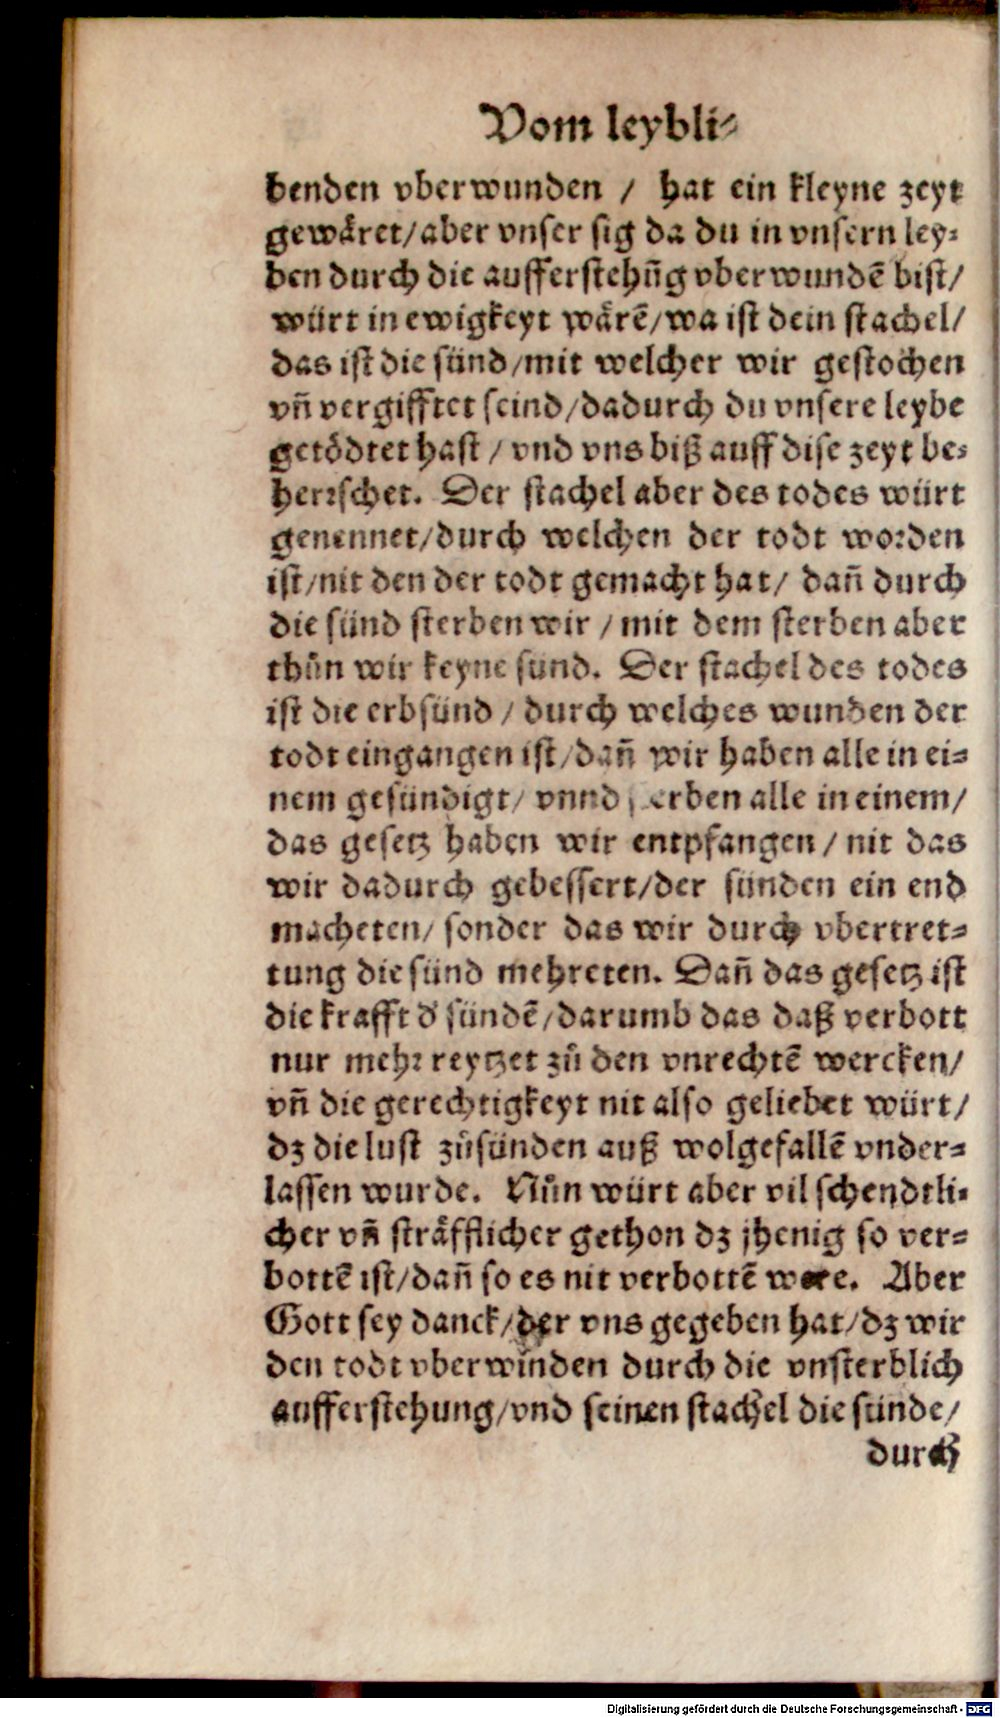 Vom leybli⸗
benden vberwunden / hat ein kleyne zeyt
gewåret/aber vnser sig da du in vnsern ley⸗
ben durch die aufferstehūg vberwundē bist/
würt in ewigkeyt wårē/wa ist dein stachel/
das ist die sünd/mit welcher wir gestochen
vñ vergifftet seind/dadurch du vnsere leybe
getödtet hast / vnd vns biß auff dise zeyt be⸗
herrschet. Der stachel aber des todes würt
genennet/durch welchen der todt worden
ist/nit den der todt gemacht hat/ dañ durch
die sünd sterben wir / mit dem sterben aber
thůn wir keyne sünd. Der stachel des todes
ist die erbsünd / durch welches wunden der
todt eingangen ist/dañ wir haben alle in ei⸗
nem gesündigt/ vnnd erben alle in einem/
das gesetz haben wir entpfangen / nit das
wir dadurch gebessert/der sünden ein end
macheten/ sonder das wir durch vbertret⸗
tung die sünd mehreten. Dañ das gesetz ist
die krafft d' sündē/darumb das daß verbott
nur mehr reytzet zů den vnrechtē wercken/
vñ die gerechtigkeyt nit also geliebet würt/
dz die lust zůsünden auß wolgefallē vnder⸗
lassen wurde. Nůn würt aber vil schendtli⸗
cher vñ stråfflicher gethon dz jhenig so ver⸗
bottē ist/dañ so es nit verbottē were. Aber
Gott sey danck/der vns gegeben hat/dz wir
den todt vberwinden durch die vnsterblich
aufferstehung/vnd seinen stachel die sünde/
durch
Digitalisierung gefördert durch die Deutsche Forschungsgemeinschaft - DFG